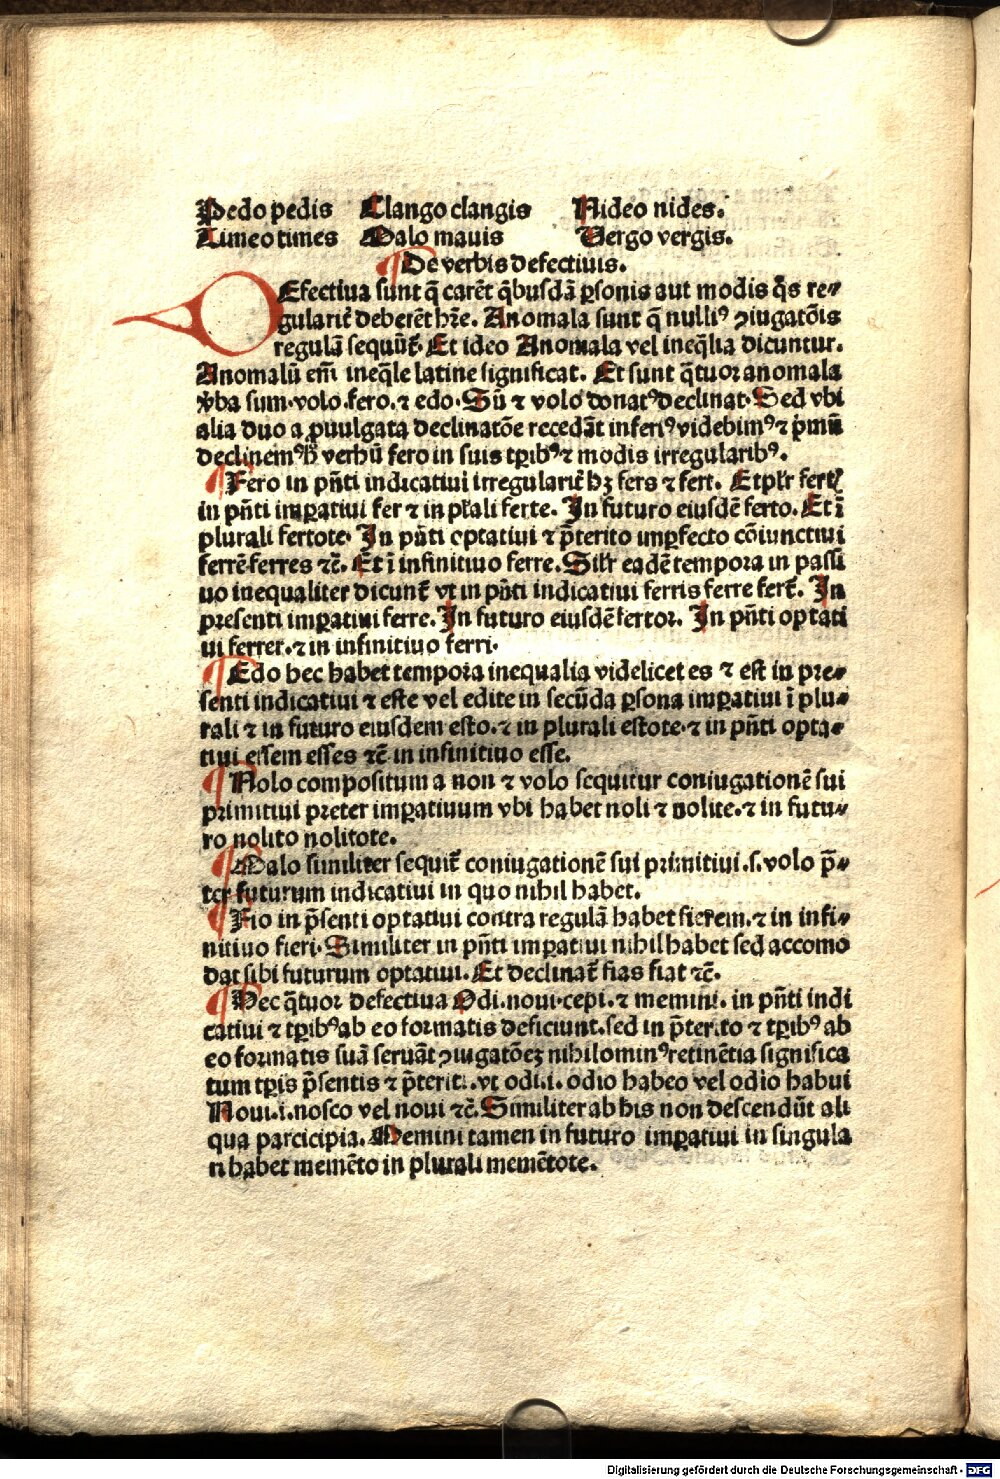 Pedo pedis Clango clangis Nideo nides.
Timeo times Malo mauis Vergo vergis.
De verbis defectiuis.
DEfectiua sunt q̄ carēt q̄busdā ꝑsonis aut modis q̄s re⸗
gularit̄ deberēt hr̄e. Anomala sunt q̄ nulliꝰ ꝯiugatōis
regulā sequūt̄. Et ideo Anomala vel ineq̄lia dicuntur.
Anomalū em̄ ineq̄le latine significat. Et sunt q̄tuor anomala
v̄ba sum.volo.fero.⁊ edo.Sū ⁊ volo donatꝰ declinat.Sed vbi
alia duo a ꝓuulgata declinatōe recedāt inferiꝰ videbimꝰ ⁊ p̄mū
declinemꝰ h̄ verbū fero in suis tꝑibꝰ ⁊ modis irregularibꝰ.
Fero in pn̄ti indicatiui irregularit̄ hꝫ fers ⁊ fert. Et pl̄r fert̄
in pn̄ti imꝑatiui fer ⁊ in pl̄ali ferte. In futuro eiusdē ferto. Et ī
plurali fertote. In pn̄ti optatiui ⁊ p̄terito imꝑfecto cōiunctiui
ferrē ferres ⁊c̄. Et ī infinitiuo ferre. Silr̄ eadē tempora in passi
uo inequaliter dicunt̄ vt in pn̄ti indicatiui ferris ferre fert̄. In
presenti imꝑatiui ferre. In futuro eiusdē fertor. In pn̄ti optati
ui ferrer.⁊ in infinitiuo ferri.
Edo hec habet tempora inequalia videlicet es ⁊ est in pre⸗
senti indicatiui ⁊ este vel edite in secūda ꝑsona imꝑatiui ī plu⸗
rali ⁊ in futuro eiusdem esto.⁊ in plurali estote.⁊ in pn̄ti opta⸗
tiui essem esses ⁊c̄ in infinitiuo esse.
Nolo compositum a non ⁊ volo sequitur coniugationē sui
primitiui preter imꝑatiuum vbi habet noli ⁊ nolite.⁊ in futu⸗
ro nolito nolitote.
Malo similiter sequit̄ coniugationē sui primitiui.s.volo p̄⸗
ter futurum indicatiui in quo nihil habet.
Fio in p̄senti optatiui contra regulā habet fierem.⁊ in infi⸗
nitiuo fieri.Similiter in pn̄ti imꝑatiui nihil habet sed accomo
dat sibi futurum optatiui.Et declinat̄ fias fiat ⁊c̄.
Hec q̄tuor defectiua Odi.noui.cepi.⁊ memini. in pn̄ti indi
catiui ⁊ tꝑibꝰ ab eo formatis deficiunt.sed in p̄terito ⁊ tꝑibꝰ ab
eo formatis suā seruāt ꝯiugatōeꝫ nihilominꝰ retinētia significa
tum tꝑis p̄sentis ⁊ p̄teriti.vt odi.i.odio habeo vel odio habui
Noui.i.nosco vel noui ⁊c̄.Similiter ab his non descendūt ali
qua parcicipia. Memini tamen in futuro imꝑatiui in singula
ri habet memēto in plurali memētote.
Digitalisierung gefördert durch die Deutsche Forschungsgemeinschaft - DFG